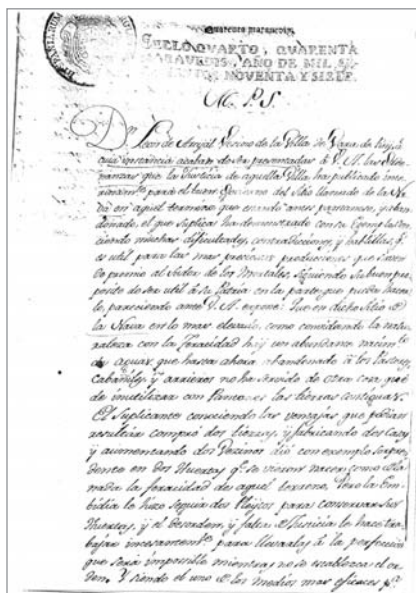 Quarenta maravedis.
SELLO QVARTO, QVARENTA
MARAVEDIS, AÑO DE MIL SE-
NOVENTA Y SIETE.
M. P. S.
Dn. Leon de Arroyal Vecino de la Villa de Vara de Rey, à
cuia instancia acaban de ser presentadas à V. A. las Orde-
nanzas que la Justicia de aquella Villa ha publicado inte-
rinamte. para el buen govierno del Sitio llamado de la Na-
va en aquel termino que estando antes pantanoso, y aban-
donado, el que suplica ha demostrado con su exemplo ven-
ciendo muchas dificultades, contradicciones, y hablillas, q.
es util para las mas preciosas producciones que
premio al sudor de los Mortales, siguiendo su buen pro-
posito de ser util à su Patria en la parte que pueda hacer-
lo, pareciendo ante V. A. expone: Que en dicho Sitio de
la Nava en lo mas elevado, como convidando la natu-
raleza con la feracidad hay un abundante nacimto.
de aguas, que hasta ahora abandonado à los Pastores,
Cabañiles, y arrieros no ha servido de otra cosa que
de inutilizar con las tierras contiguas.
El Suplicante conociendo las ventajas que podian
resultar compró dos tierras, y fabricando dos Casas
y aumentando dos Vezinos dió con exemplo sorpre-
dente en dos Huertas qe. se vieron nacer como
la feracidad de aquel terreno. Pero la Em-
bidia le hizo seguir dos Pleytos para conservar sus
Huertas, y el desorden, y falta de Justicia le hace tra-
bajar incesantemte. para llevarlas à la perfeccion
que será imposible mientras no se establezca el or-
den. Y siendo el uno de los medios mas eficaces pa.